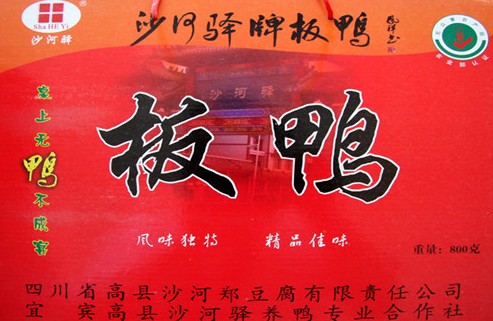 Sha HE Yi
沙河驿
沙河驿牌板鸭
沙河驿
宴上无鸭不成宴
板鸭
风味独特 精品佳味
重量：800克
四川省高县沙河郑豆腐有限责任公司
宜宾高县沙河驿养鸭专业合作社